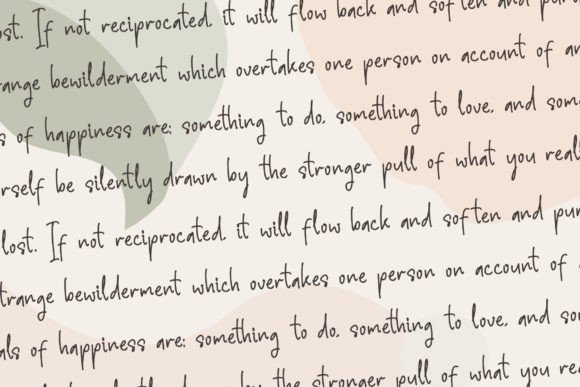 ost. If not reciprocated it will flow back and soften and pur
range bewilderment which overtakes one person on account of an
s of happiness are: something to do, something to love, and som
rself be silently drawn by the stronger pull of what you real
lost. If not reciprocated it will flow back and soften and pur
trange bewilderment which overtakes one person on account of
als of happiness are: something to do, something to love, and so
drawn by the stronger pull of what you rea